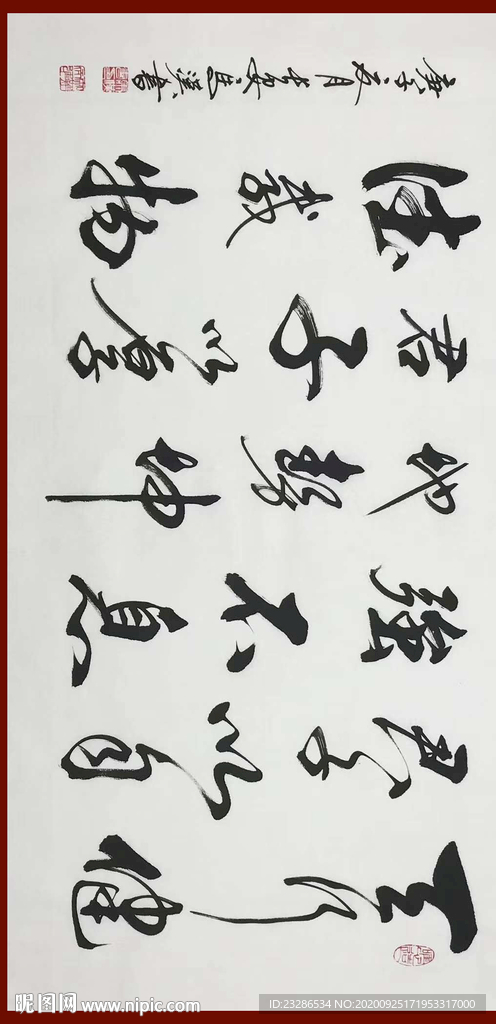 天行健
君子以自
强不息
地势坤
君子以厚
德载物
庚子五月
书
昵图网 www.nipic.com
ID:23286534 NO:20200925171953317000